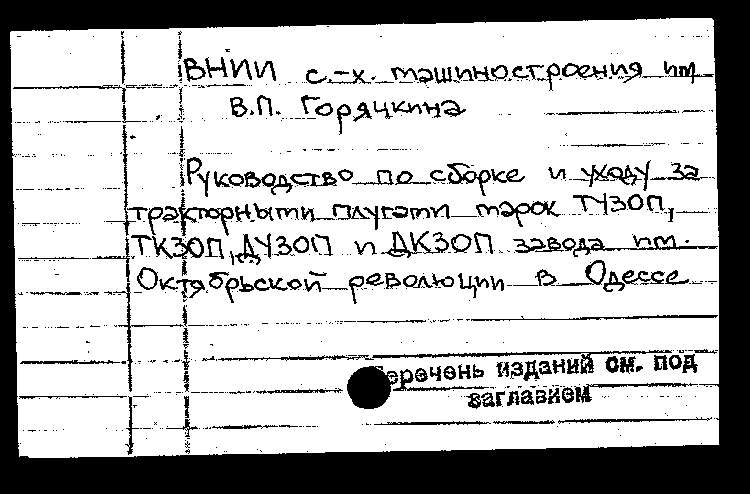 ВНИИ с.-х. машиностроения им
В.П. Горячкина
Руководство по сборке и уходу за
тракторными плугами марок ТУЗОП,
ТКЗОП, ДУЗОП и ДКЗОП завода им.
Октябрьской революции в Одессе
Перечень изданий см. под
заглавием